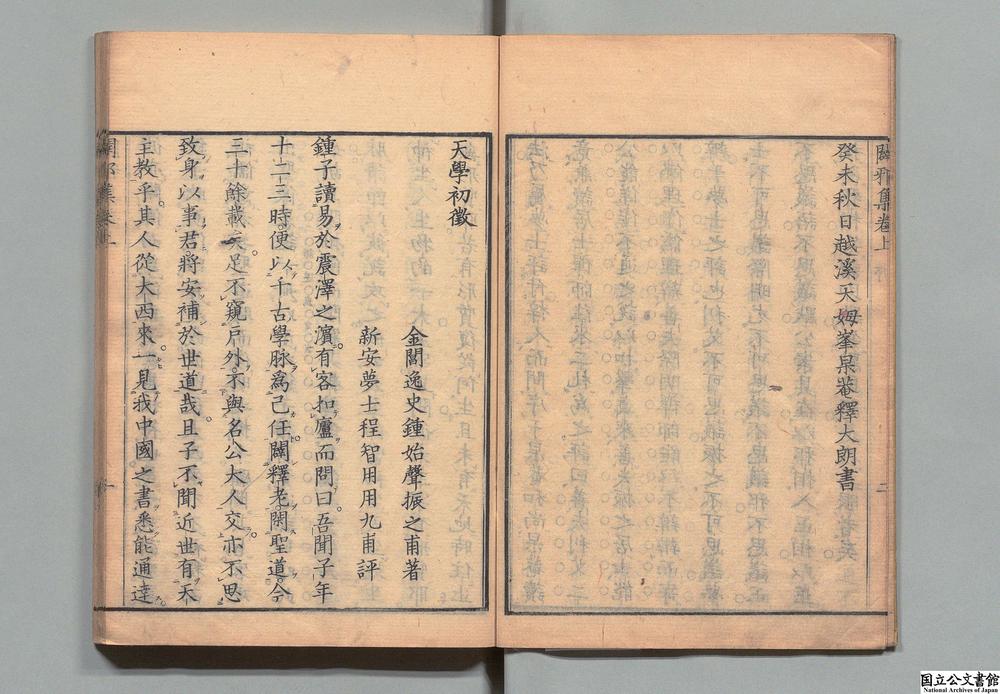 闢邪集卷上
癸未秋日越溪天姆峯杲菴釋大朗書
二
天學初徵
金閶逸史鍾始聲振之甫著
新安夢士程智用用九甫評
鍾子讀易於震澤之濵有客扣廬而問曰吾聞子年
十二三時便以千古學脉爲己任闢釋老閑聖道今
三十餘載矣足不窺戶外不與名公大人交亦不思
致身以事君將安補於世道哉且子不聞近世有天
主教乎其人從大西來一見我中國之書悉能通達
闢邪集卷上
一
国立公文書館
National Archives of Japan